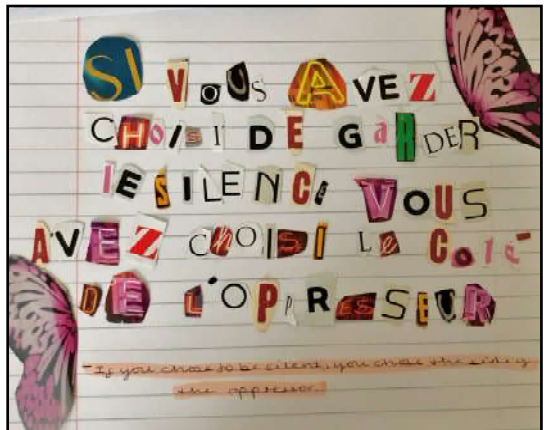 SI VOUS AVEZ
CHOISI DE GaRDER
lE SILENCE VOUS
AVEZ CHOISI Le Coté
DE L'OPPRESSEUR
- If you chose to be silent, you chose the side of
the oppressor.